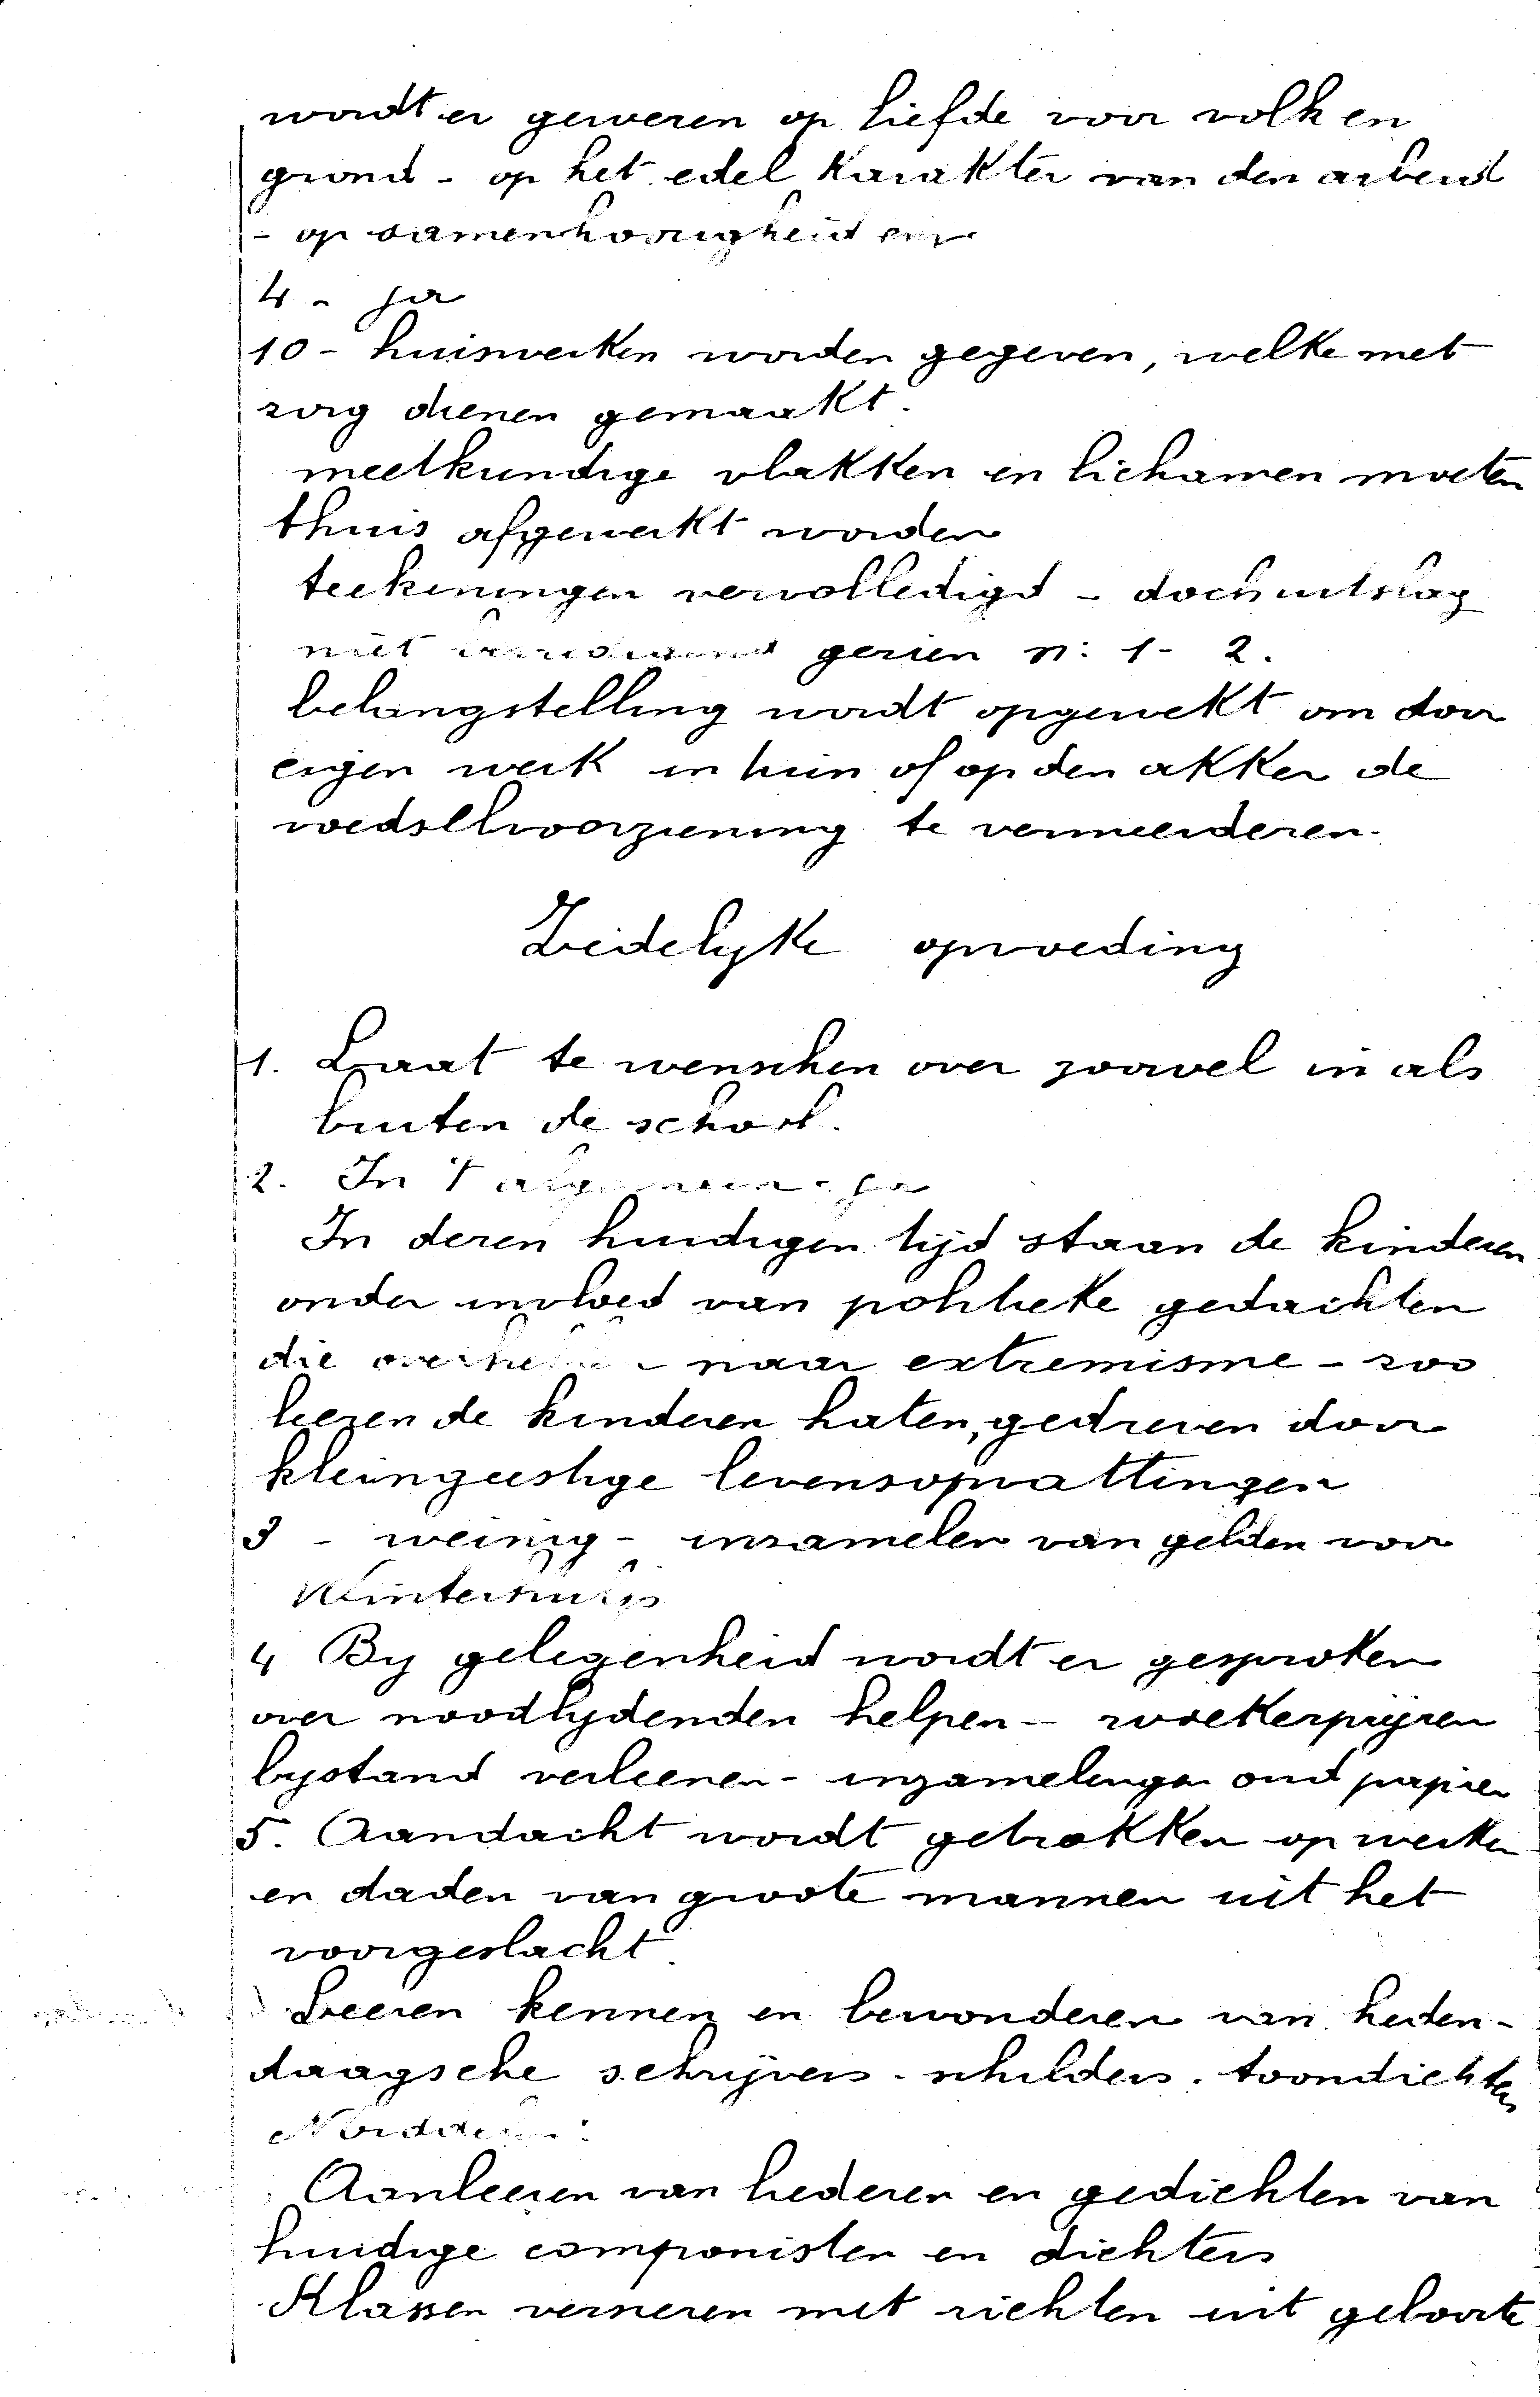 wordt er gewezen op liefde voor volk en
grond - op het edel karakter van den arbeid
- op samenhoorigheid enz.
4 - ja
10 - huiswerken worden gegeven, welke met
zorg dienen gemaakt.
meetkundige vlakken en lichamen moeten
thuis afgewerkt worden
teekeningen vervolledigd - doch uitslag
niet gezien n: 1 - 2.
belangstelling wordt opgewekt om door
eigen werk in tuin of op den akker de
voedselvoorziening te vermeerderen.
Zedelyke opvoeding
1. Laat te wenschen over zoowel in als
buiten de school.
2. In 't algemeen - ja
In dezen huidigen tijd staan de kinderen
onder invloed van politieke gedachten
die overhellen naar extremisme - zoo
leeren de kinderen haten, gedreven door
kleingeestige levensopvattingen
3 - weinig - inzamelen van gelden voor
Winterhulp
4 By gelegenheid wordt er gesproken
over noodlydenden helpen - woekerpryzen
bystand verleenen - inzamelingen oud papier
5. Aandacht wordt getrokken op werken
en daden van groote mannen uit het
voorgeslacht.
Leeren kennen en bewonderen van heden-
daagsche schrijvers - schilders - toondichters
Aanleeren van liederen en gedichten van
huidige componisten en dichters
Klassen versieren met zichten uit geboorte